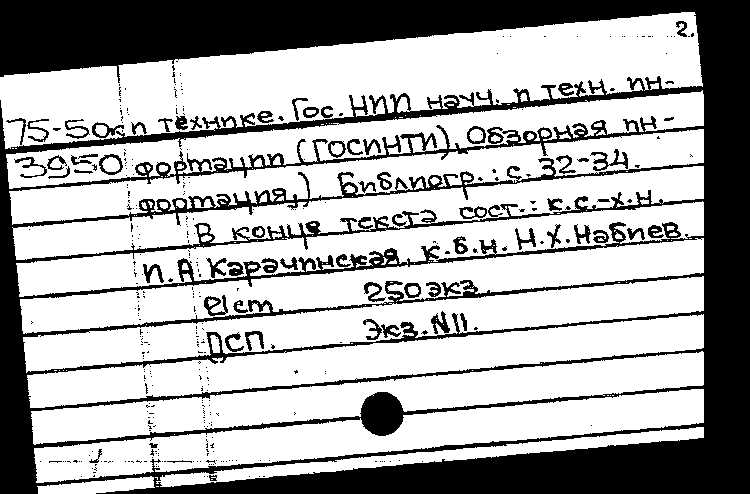 2.
75-50к и технике. Гос. НИИ науч. и техн. ин-
3950 формации (ГОСИНТИ). Обзорная ин-
формация,). Библиогр.: с. 32-34.
В конце текста сост.: к.с.-х.н.
И.А. Карачинская, к.б.н. Н.Х. Набиев.
ст. 250 экз.
ДСП. Экз. N11.